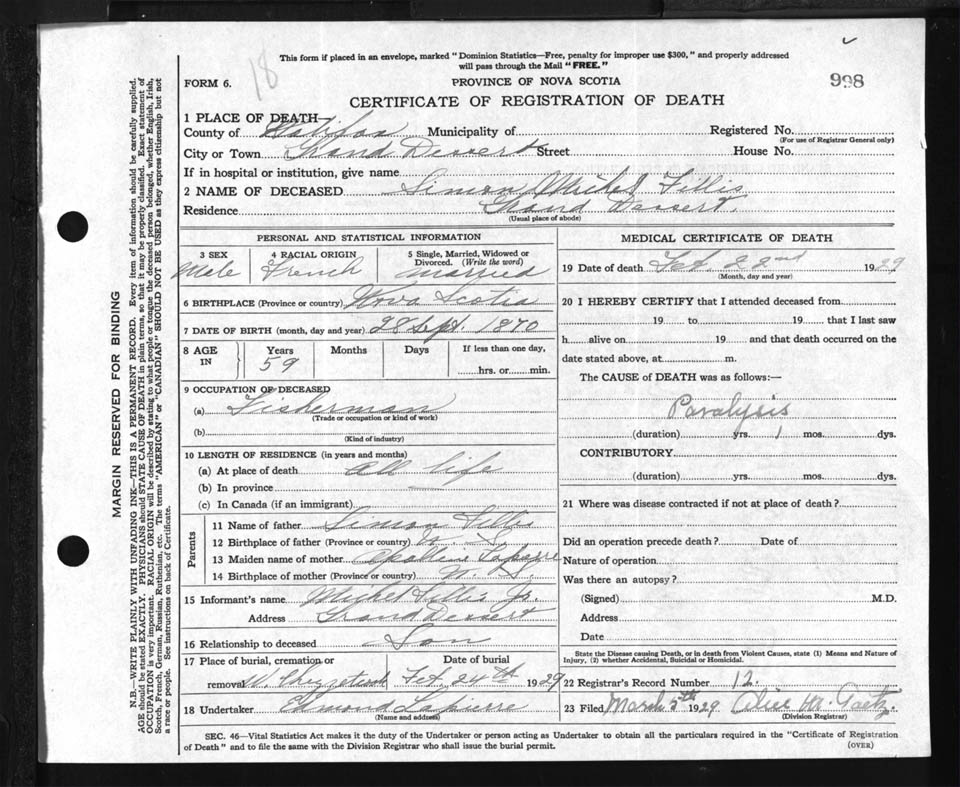 This form if placed in an envelope, marked "Dominion Statistics—Free, penalty for improper use $300," and properly addressed
will pass through the Mail "FREE."
18
998
FORM 6.
PROVINCE OF NOVA SCOTIA
CERTIFICATE OF REGISTRATION OF DEATH
1 PLACE OF DEATH—
County of Halifax Municipality of Registered No.
(For use of Registrar General only)
City or Town Grand Dessert Street House No.
If in hospital or institution, give name
2 NAME OF DECEASED Simon Michel Fillis
Residence Grand Dessert.
(Usual place of abode)
PERSONAL AND STATISTICAL INFORMATION
3 SEX 4 RACIAL ORIGIN 5 Single, Married, Widowed or
Divorced. (Write the word)
Male French married
6 BIRTHPLACE (Province or country) Nova Scotia
7 DATE OF BIRTH (month, day and year) 28 Sept. 1870
8 AGE IN Years Months Days If less than one day,
59 hrs. or min.
9 OCCUPATION OF DECEASED
(a) Fisherman
(Trade or occupation or kind of work)
(b)
(Kind of industry)
10 LENGTH OF RESIDENCE (in years and months)
(a) At place of death all life
(b) In province —
(c) In Canada (if an immigrant)
Parents
11 Name of father Simon Fillis
12 Birthplace of father (Province or country) N. S.
13 Maiden name of mother
14 Birthplace of mother (Province or country) N. S.
15 Informant's name Michel Fillis Jr.
Address Grand Dessert
16 Relationship to deceased Son
17 Place of burial, cremation or Date of burial
removal W. Chezzetcook Feb. 24th 1929
18 Undertaker Edmond Lapierre
(Name and address)
MEDICAL CERTIFICATE OF DEATH
19 Date of death Feb. 22nd 1929
(Month, day and year)
20 I HEREBY CERTIFY that I attended deceased from
19 to 19 that I last saw
h alive on 19 and that death occurred on the
date stated above, at m.
The CAUSE of DEATH was as follows:—
Paralysis
(duration) yrs. 1 mos. dys.
CONTRIBUTORY
(duration) yrs. mos. dys.
21 Where was disease contracted if not at place of death?
Did an operation precede death? Date of
Nature of operation
Was there an autopsy?
(Signed) M.D.
Address
Date
State the Disease causing Death, or in death from Violent Causes, state (1) Means and Nature of
Injury, (2) whether Accidental, Suicidal or Homicidal.
22 Registrar's Record Number 12.
23 Filed March 5th 1929 Alice M. Gaetz
(Division Registrar)
SEC. 46—Vital Statistics Act makes it the duty of the Undertaker or person acting as Undertaker to obtain all the particulars required in the "Certificate of Registration
of Death" and to file the same with the Division Registrar who shall issue the burial permit.
(OVER)
MARGIN RESERVED FOR BINDING
N.B.—WRITE PLAINLY WITH UNFADING INK—THIS IS A PERMANENT RECORD. Every item of information should be carefully supplied.
AGE should be stated EXACTLY. PHYSICIANS should STATE CAUSE OF DEATH in plain terms, so that it may be properly classified. Exact statement of
OCCUPATION is very important. RACIAL ORIGIN will be described by stating to what people or tongue the deceased person belonged, whether English, Irish,
Scotch, French, German, Russian, Ruthenian, etc. The terms "AMERICAN" or "CANADIAN" SHOULD NOT BE USED as they express citizenship but not
a race or people. See instructions on back of Certificate.